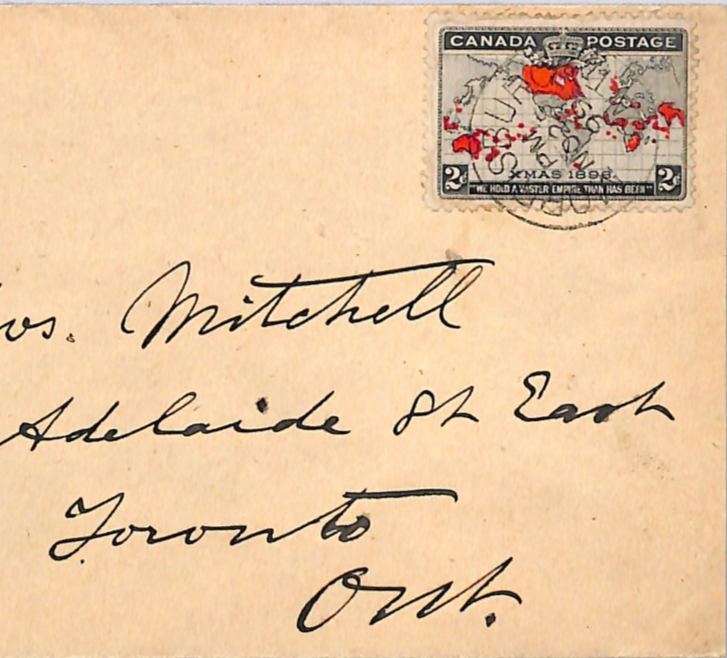 CANADA POSTAGE
XMAS 1898
2c 2c
"WE HOLD A VASTER EMPIRE THAN HAS BEEN"
PM
Mitchell
Adelaide St East
Toronto
Ont.